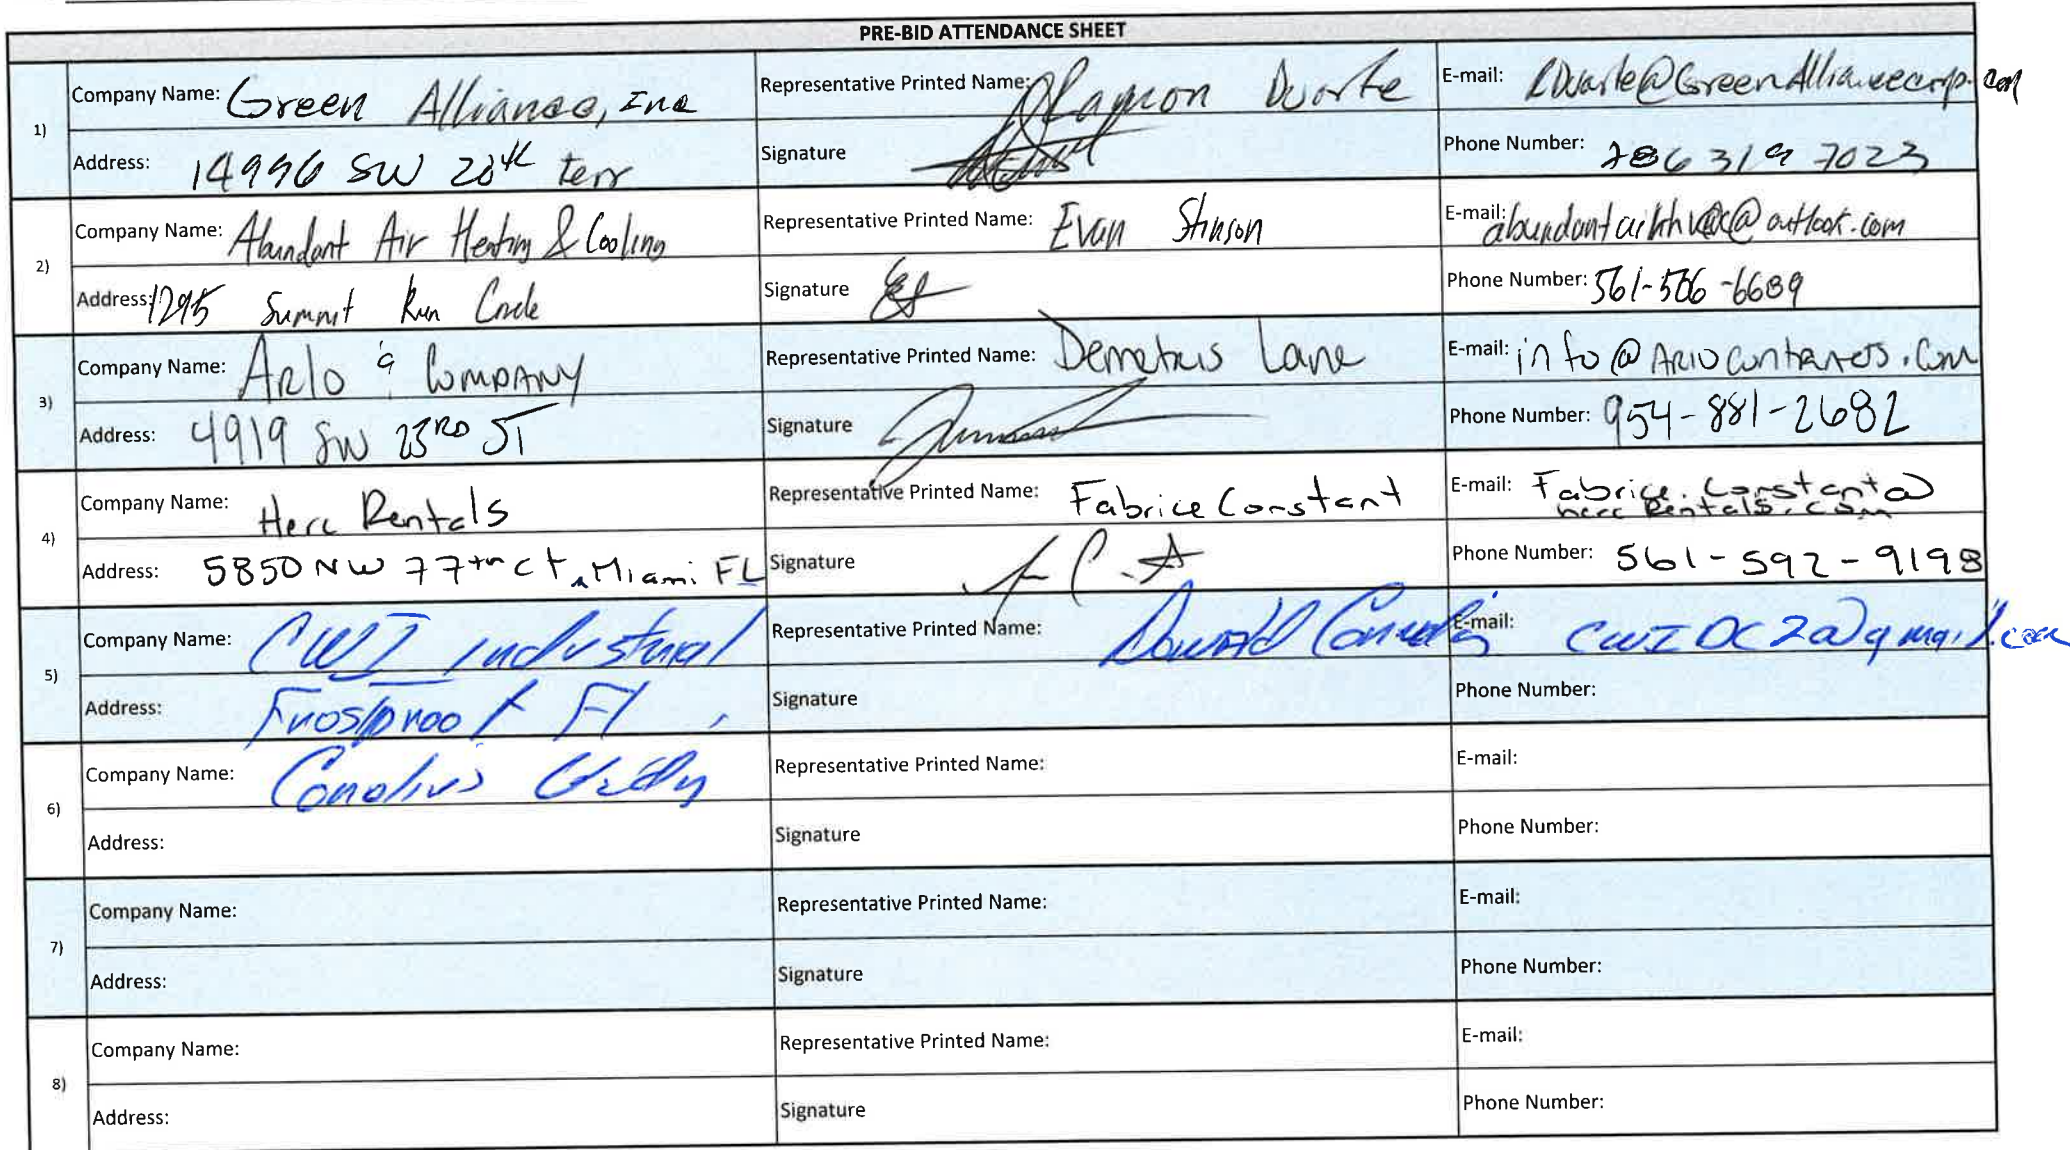 PRE-BID ATTENDANCE SHEET
1)
Company Name: Green Alliance, Inc
Representative Printed Name: Ramon Duarte
E-mail: RDuarte@GreenAlliancecorp.com
Address: 14996 SW 20th terr
Signature
Phone Number: 786 319 7023
2)
Company Name: Abundant Air Heating & Cooling
Representative Printed Name: Evan Stinson
E-mail: abundantairhvac@outlook.com
Address: 1295 Summit Run Circle
Signature
Phone Number: 561-506-6689
3)
Company Name: Arlo & Company
Representative Printed Name: Demetrius Lane
E-mail:
Address: 4919 SW 23RD ST
Signature
Phone Number: 954-881-2682
4)
Company Name: Herc Rentals
Representative Printed Name: Fabrice Constant
E-mail: Fabrice.Constant@
herc Rentals.com
Address: 5850 NW 77th Ct, Miami FL
Signature
Phone Number: 561-592-9198
5)
Company Name: CWI Industrial
Representative Printed Name: Donald
E-mail: CWIDC2@gmail.com
Address: Frostproof Fl
Signature
Phone Number:
6)
Company Name:
Representative Printed Name:
E-mail:
Address:
Signature
Phone Number:
7)
Company Name:
Representative Printed Name:
E-mail:
Address:
Signature
Phone Number:
8)
Company Name:
Representative Printed Name:
E-mail:
Address:
Signature
Phone Number: